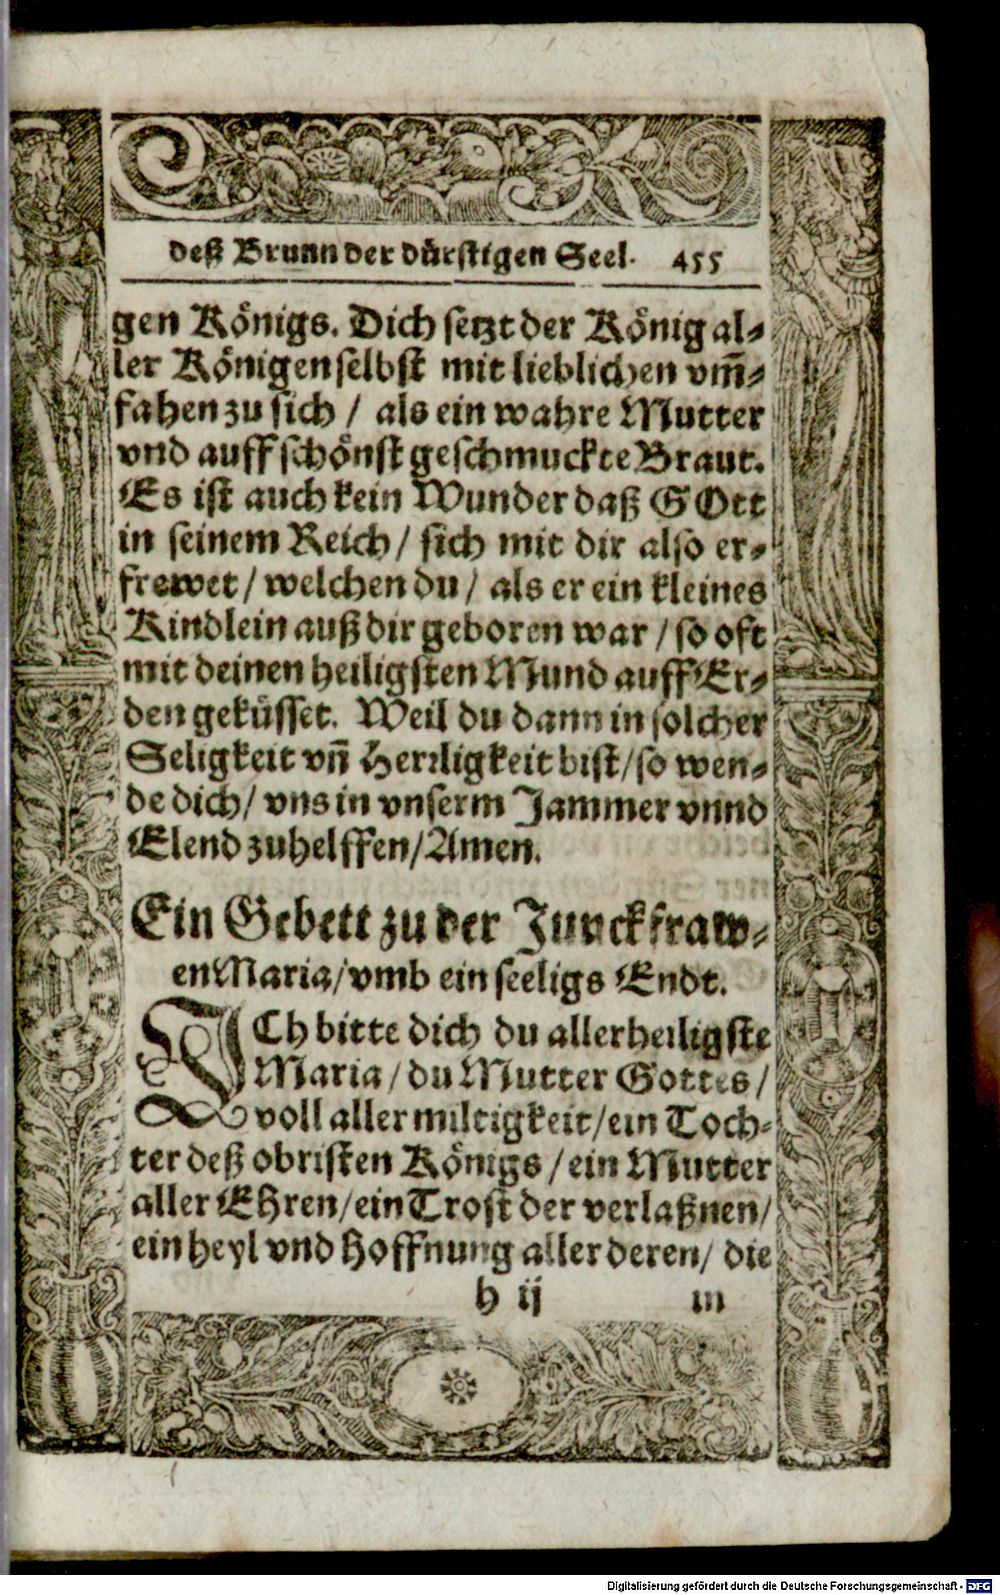 deß Brunn der dürstigen Seel. 455
gen Königs. Dich setzt der König al-
ler Königen selbst mit lieblichen vm̃-
fahen zu sich / als ein wahre Mutter
vnd auff schönst geschmuckte Braut.
Es ist auch kein Wunder daß GOtt
in seinem Reich / sich mit dir also er-
frewet / welchen du / als er ein kleines
Kindlein auß dir geboren war / so oft
mit deinen heiligsten Mund auff Er-
den geküsset. Weil du dann in solcher
Seligkeit vñ Herrligkeit bist / so wen-
de dich / vns in vnserm Jammer vnnd
Elend zuhelffen / Amen.
Ein Gebett zu der Junckfraw-
en Maria / vmb ein seeligs Endt.
ICh bitte dich du allerheiligste
Maria / du Mutter Gottes /
voll aller miltigkeit / ein Toch-
ter deß obristen Königs / ein Mutter
aller EHren / ein Trost der verlaßnen /
ein heyl vnd Hoffnung aller deren / die
h ij in
Digitalisierung gefördert durch die Deutsche Forschungsgemeinschaft - DFG